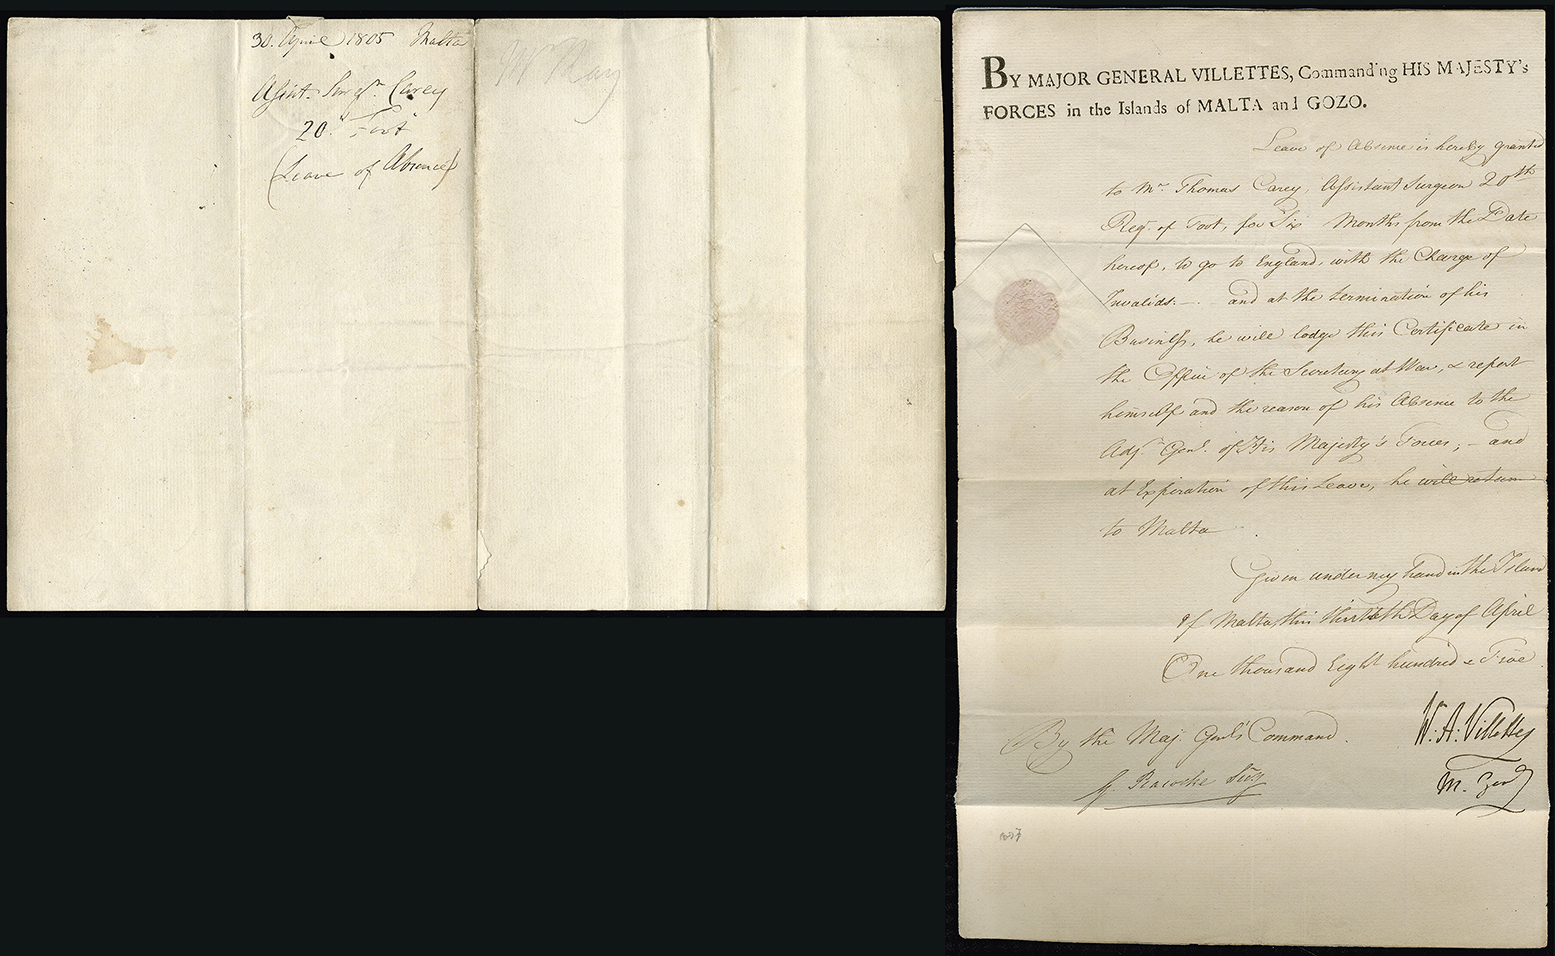 30. April 1805 Malta
Assist. Surgn. Carey
20th Foot
(Leave of Absence)
Mr Kay
BY MAJOR GENERAL VILLETTES, Commanding HIS MAJESTY's
FORCES in the Islands of MALTA and GOZO.
Leave of Absence is hereby granted
to Mr. Thomas Carey, Assistant Surgeon 20th
Regt. of Foot, for Six Months from the Date
hereof, to go to England, with the Charge of
Invalids. — and at the termination of his
Business, he will lodge this Certificate in
the Office of the Secretary at War, & report
himself and the reason of his Absence to the
Adjt. Genl. of His Majesty's Forces, — and
at Expiration of this Leave, he will return
to Malta
Given under my hand in the Island
of Malta, this thirtieth Day of April
One thousand Eight hundred & Five
By the Maj. Genl's Command.
W. A. Villettes
M. Genl
Secy